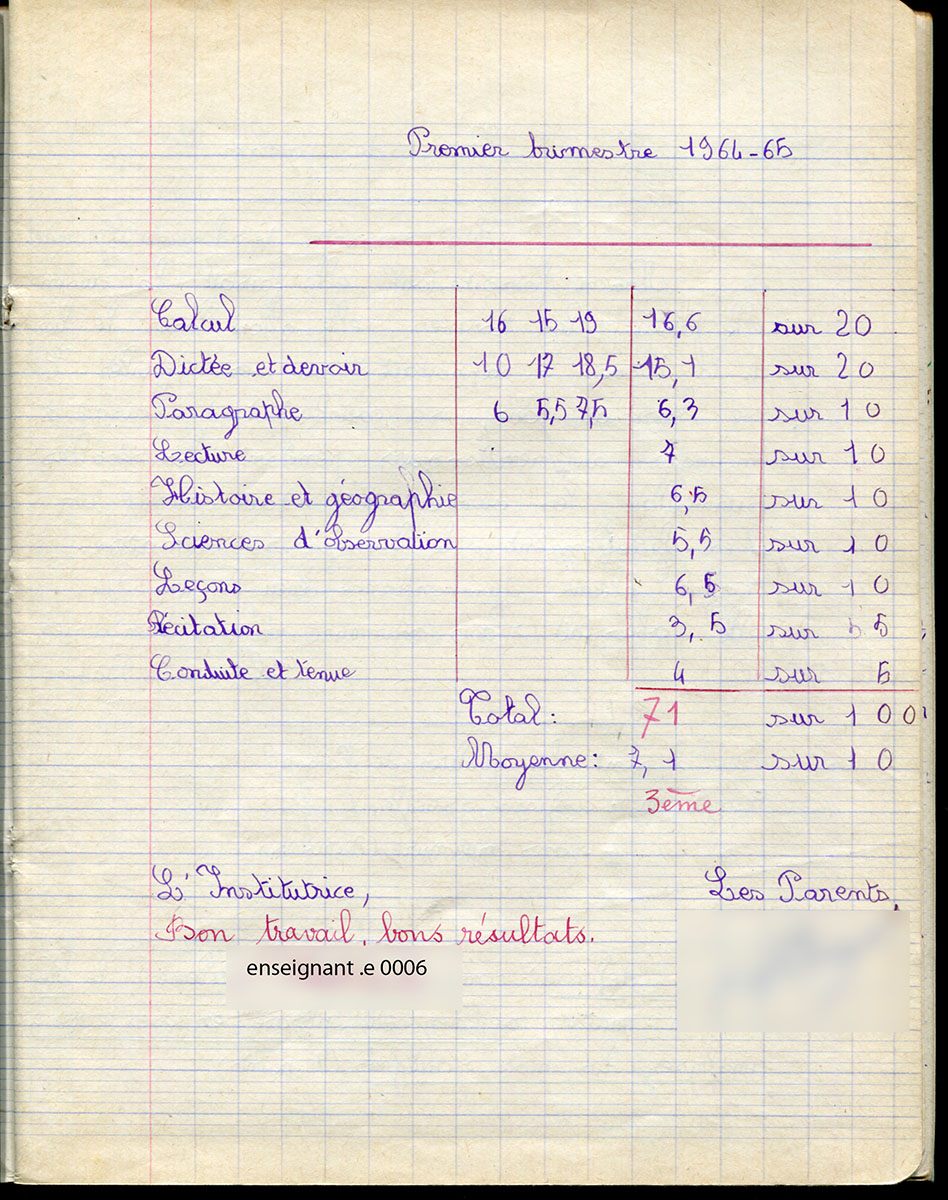 Premier trimestre 1964-65
Calcul 16 15 19 16,6 sur 20
Dictée et devoir 10 17 18,5 15,1 sur 20
Paragraphe 6 5,5 7,5 6,3 sur 10
Lecture 7 sur 10
Histoire et géographie 6,5 sur 10
Sciences d'observation 5,5 sur 10
Leçons 6,5 sur 10
Récitation 3,5 sur 5
Conduite et tenue 4 sur 5
Total: 71 sur 100
Moyenne: 7,1 sur 10
3ème
L'Institutrice, Les Parents,
Bon travail, bons résultats.
enseignant .e 0006